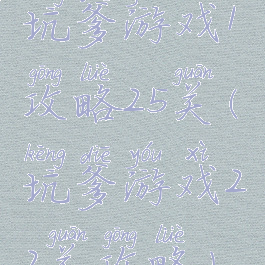 坑爹游戏1
gōng lüè guān
攻略25关（
kēng diē yóu xì
坑爹游戏2
guān gōng lüè
2关攻略）